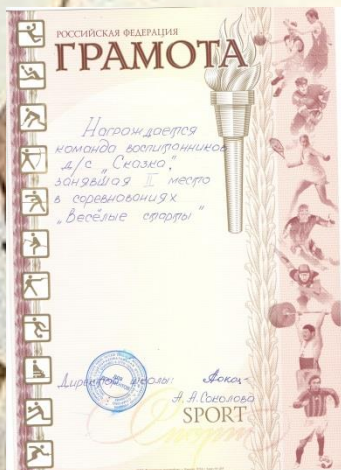 РОССИЙСКАЯ ФЕДЕРАЦИЯ
ГРАМОТА
Награждается
команда воспитанников
д/с „Сказка",
занявшая II место
в соревнованиях
„Весёлые старты"
Директор школы:
А.А.Соколова
SPORT
Спорт